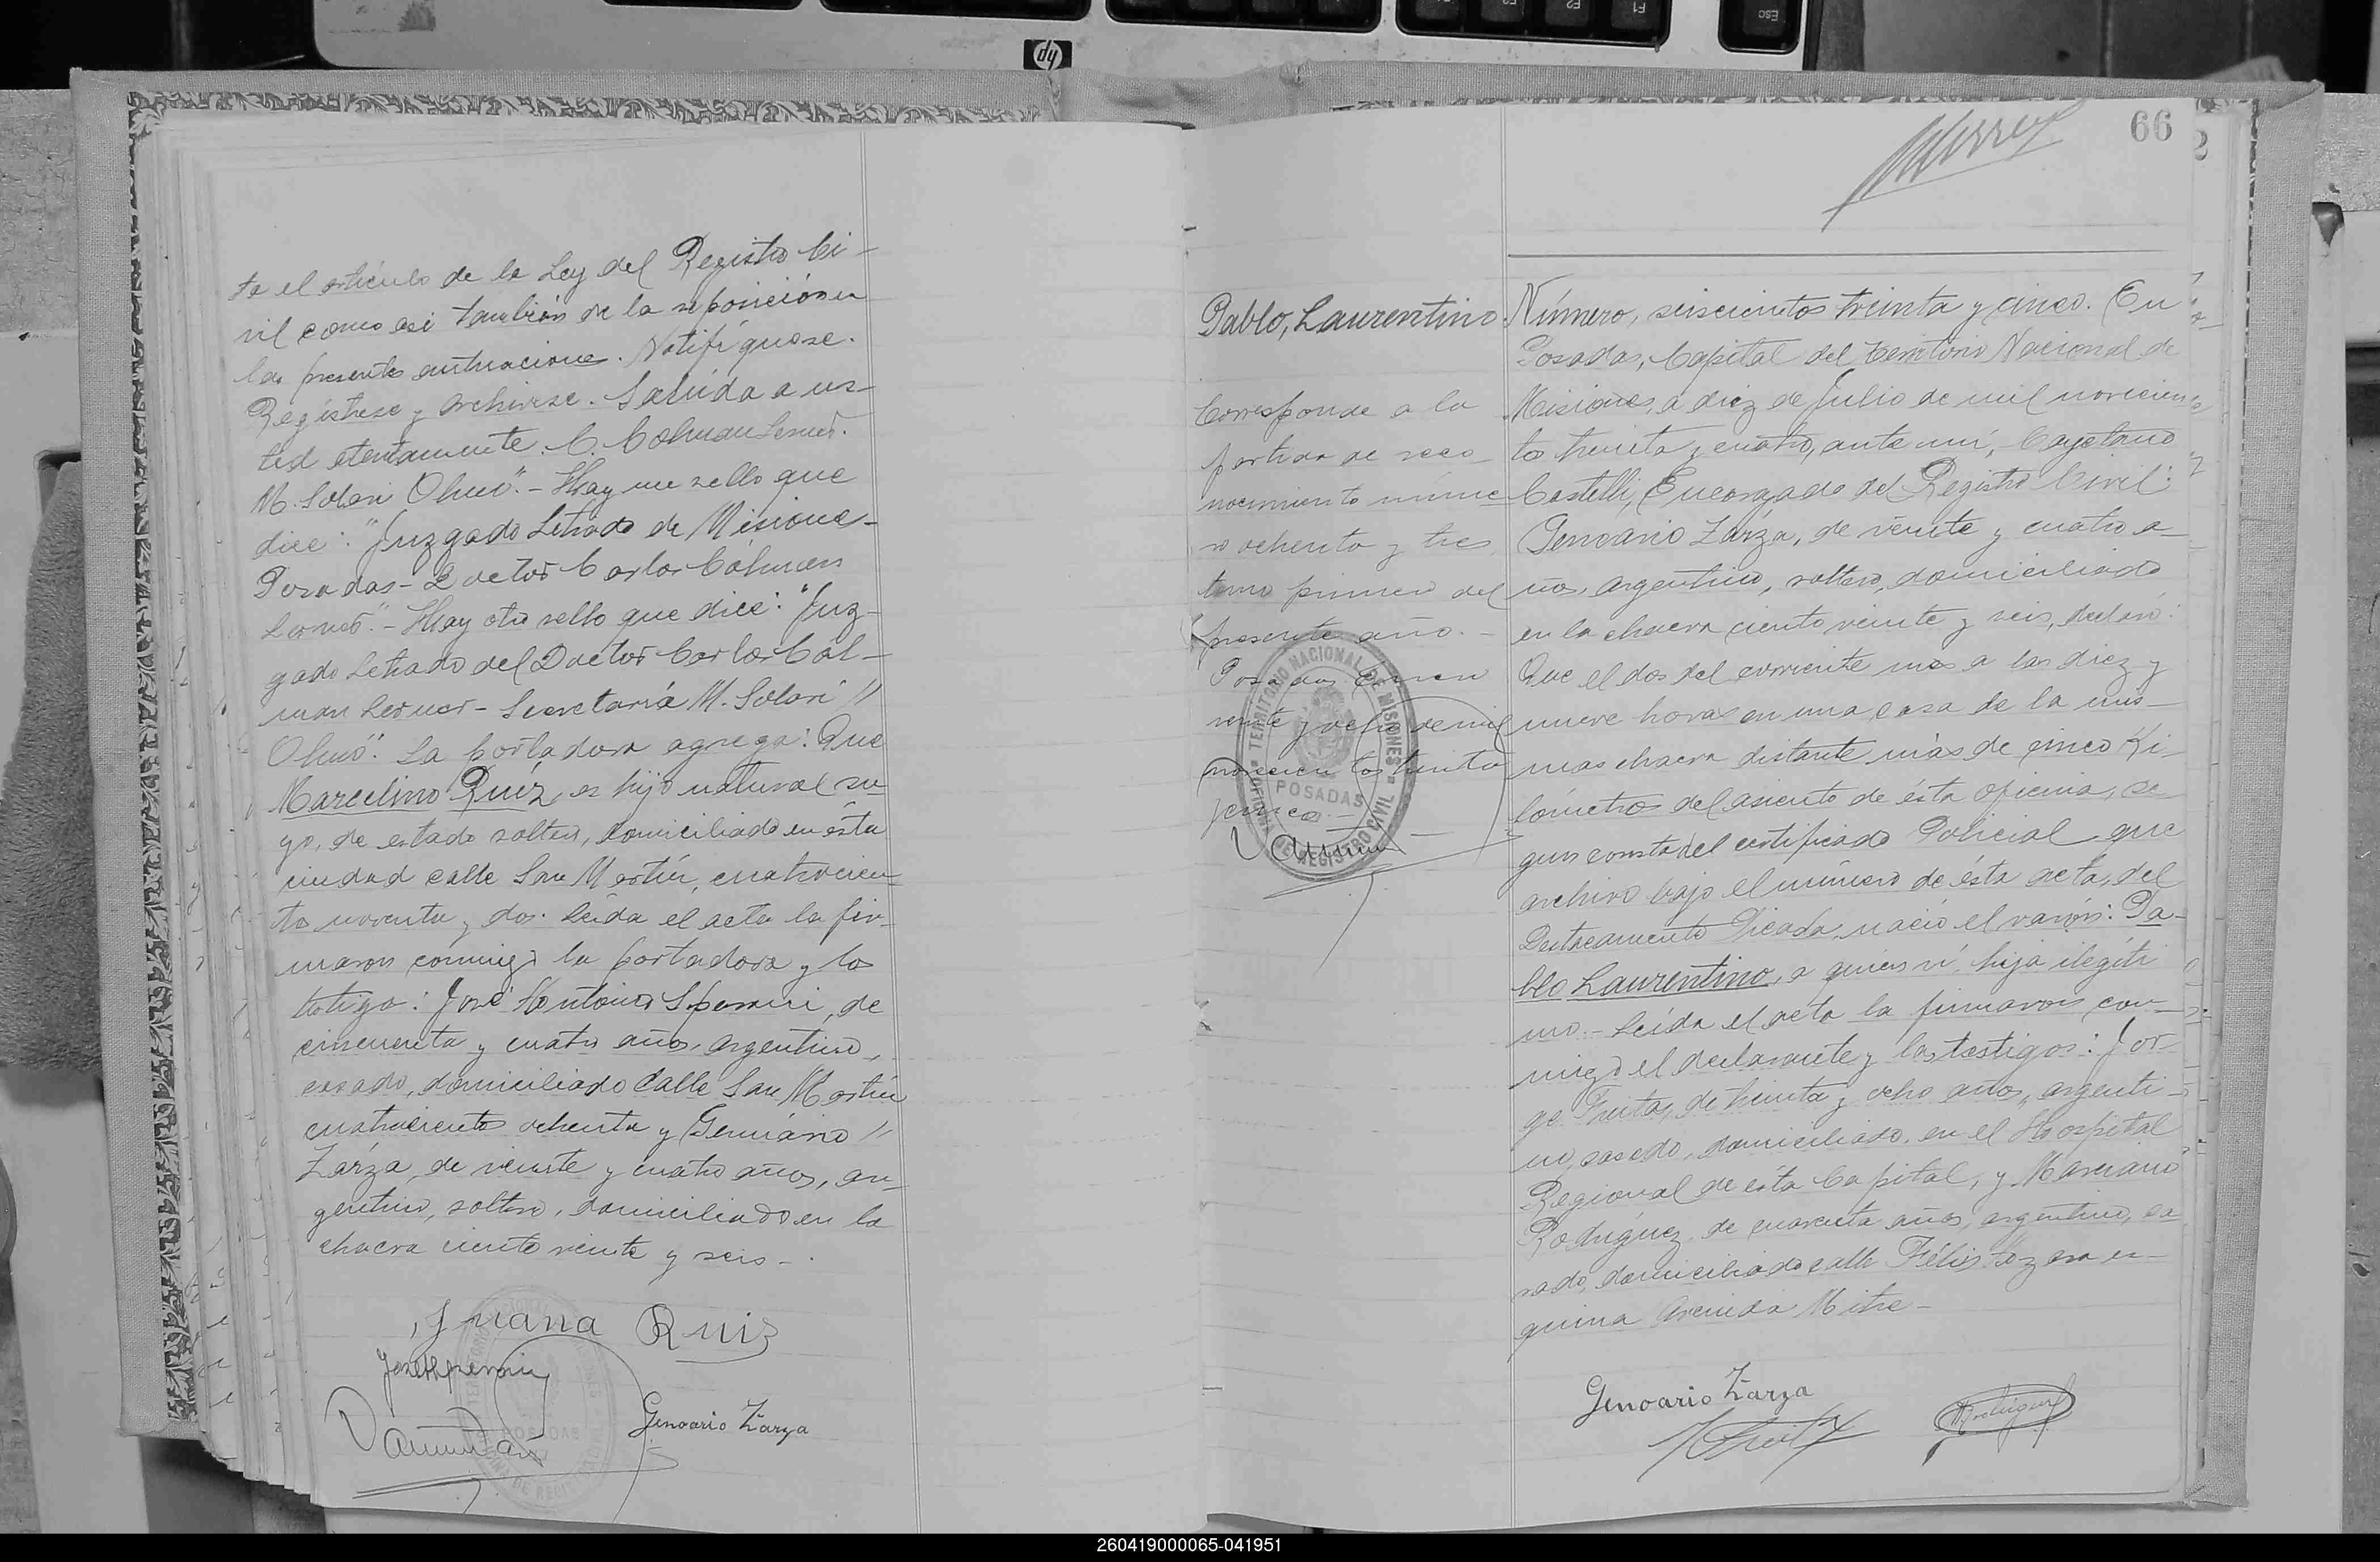 te el artículo de la Ley del Registro Ci-
vil como así también de la reposición en
las presentes actuaciones. Notifíquese.
Regístrese y archívese. Saluda a us-
ted atentamente. C. Colman Lerner.
M. Solari Olmos". - Hay un sello que
dice: "Juzgado Letrado de Misiones-
Posadas - Doctor Carlos Cólman
Lerner". - Hay otro sello que dice: "Juz-
gado Letrado del Doctor Carlos Cól-
man Lerner - Secretaría M. Solari //
La portadora agrega: Que
Marcelino Ruíz, es hijo natural su
yo, de estado soltero, domiciliado en ésta
ciudad calle San Martín, cuatrocien-
tos noventa y dos. Leída el acta la fir-
maron conmigo la portadora y los
testigos: José Antonio, de
cincuenta y cuatro años, argentino,
casado, domiciliado calle San Martín
cuatrocientos ochenta y Genuário //
Zarza, de veinte y cuatro años, ar-
gentino, soltero, domiciliado en la
chacra ciento veinte y seis -.
Juana Ruiz
Genoario Zarza
66
Pablo, Laurentino.
Corresponde a la
partida de reco-
nocimiento núme
ro ochenta y tres
tomo primero del
presente año. -
Posadas Enero
veinte y de mil
novecientos treinta
y cinco. -
OFICINA DE REGISTRO CIVIL
TERRITORIO NACIONAL DE MISIONES
POSADAS
Número, seiscientos treinta y cinco. En
Posadas, Capital del Territorio Nacional de
Misiones, a diez de Julio de mil novecien
tos treinta y cuatro, ante mí, Cayetano
Castelli, Encargado del Registro Civil:
Genoario Zarza, de veinte y cuatro a-
ños, argentino, soltero, domiciliado
en la chacra ciento veinte y seis, declaró:
Que el dos del corriente mes a las diez y
nueve horas en una casa de la mis-
ma chacra distante más de cinco Ki
lómetros del asiento de ésta oficina, se
gun consta del certificado Policial que
archivo bajo el número de ésta acta, del
Destacamento Picada, nació el varón: Pa-
blo Laurentino, a quien ví, hijo ilegíti
mo. - Leída el acta la firmaron con-
migo el declarante y los testigos: Jor-
ge Freitas, de treinta y ocho años, argenti-
no, casado, domiciliado, en el Hospital
Regional de ésta Capital, y Marciano
Rodríguez, de cuarenta años, argentino, ca
sado, domiciliado calle Félix Bogado es-
quina Avenida Mitre -
Genoario Zarza
hp
ESC
F1
F2
260419000065-041951